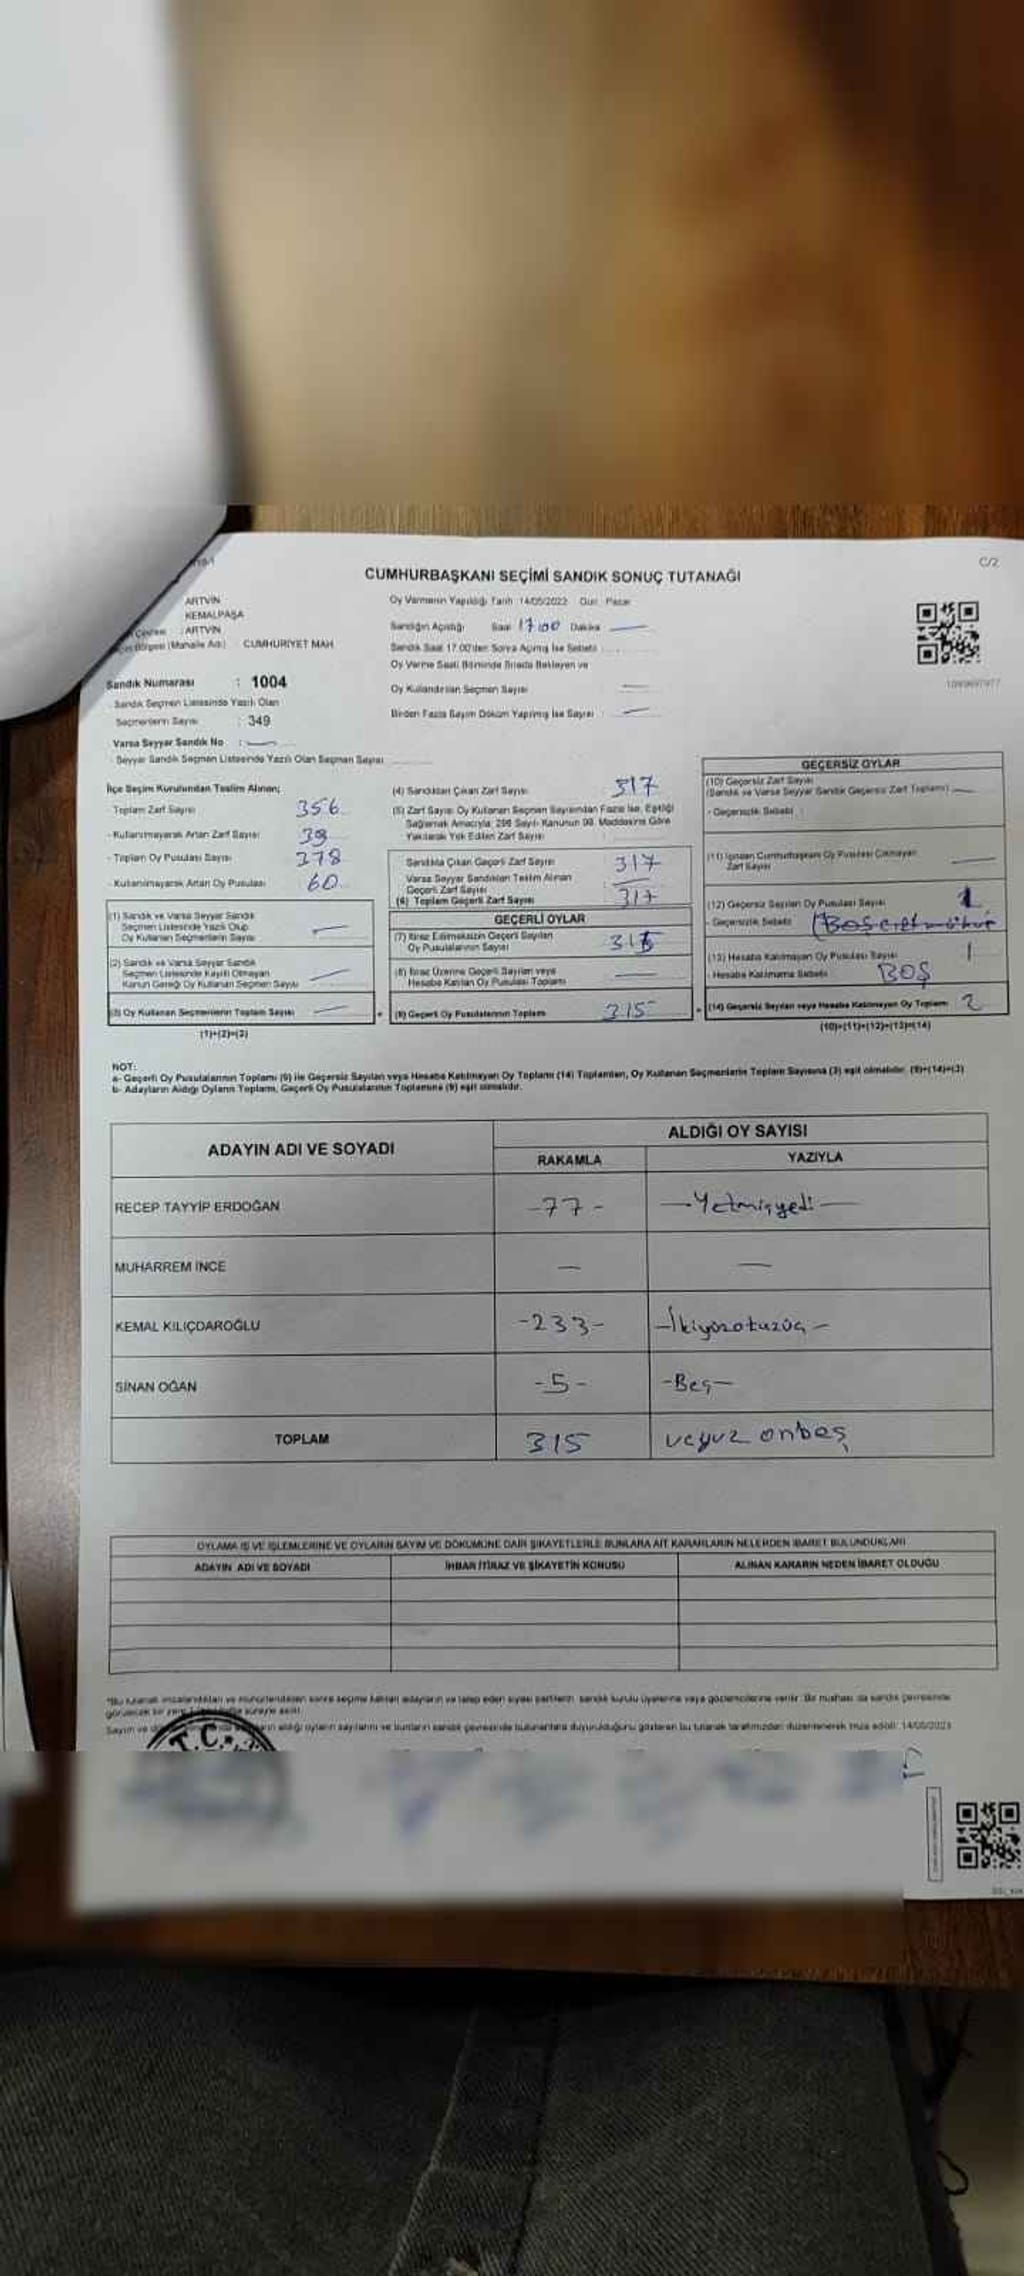 C/2
CUMHURBAŞKANI SEÇİMİ SANDIK SONUÇ TUTANAĞI
ARTVİN
KEMALPAŞA
: ARTVİN
(Mahalle Adı) CUMHURİYET MAH
Sandık Numarası : 1004
Sandık Seçmen Listesinde Yazılı Olan
Seçmenlerin Sayısı : 349
Varsa Seyyar Sandık No : —
Seyyar Sandık Seçmen Listesinde Yazılı Olan Seçmen Sayısı
Oy Vermenin Yapıldığı Tarih :14/05/2023 Gün : Pazar
Sandığın Açıldığı Saat 17:00 Dakika —
Sandık Saat 17.00'den Sonra Açılmış İse Sebebi :
Oy Verme Saati Bitiminde Sırada Bekleyen ve
Oy Kullandırılan Seçmen Sayısı : —
Birden Fazla Sayım Döküm Yapılmış İse Sayısı : —
İlçe Seçim Kurulundan Teslim Alınan;
Toplam Zarf Sayısı 356
- Kullanılmayarak Artan Zarf Sayısı 39
- Toplam Oy Pusulası Sayısı 378
- Kullanılmayarak Artan Oy Pusulası 60
(1) Sandık ve Varsa Seyyar Sandık
Seçmen Listesinde Yazılı Olup
Oy Kullanan Seçmenlerin Sayısı —
(2) Sandık ve Varsa Seyyar Sandık
Seçmen Listesinde Kayıtlı Olmayan
Kanun Gereği Oy Kullanan Seçmen Sayısı —
(3) Oy Kullanan Seçmenlerin Toplam Sayısı —
(1)+(2)=(3)
(4) Sandıktan Çıkan Zarf Sayısı 317
(5) Zarf Sayısı Oy Kullanan Seçmen Sayısından Fazla İse, Eşitliği
Sağlamak Amacıyla, 298 Sayılı Kanunun 98. Maddesine Göre
Yakılarak Yok Edilen Zarf Sayısı :
Sandıkta Çıkan Geçerli Zarf Sayısı : 317
Varsa Seyyar Sandıktan Teslim Alınan
Geçerli Zarf Sayısı : —
(6) Toplam Geçerli Zarf Sayısı : 317
GEÇERLİ OYLAR
(7) İtiraz Edilmeksizin Geçerli Sayılan
Oy Pusulalarının Sayısı : 315
(8) İtiraz Üzerine Geçerli Sayılan veya
Hesaba Katılan Oy Pusulası Toplamı : —
(9) Geçerli Oy Pusulalarının Toplamı 315
GEÇERSİZ OYLAR
(10) Geçersiz Zarf Sayısı
(Sandık ve Varsa Seyyar Sandık Geçersiz Zarf Toplamı) —
- Geçersizlik Sebebi :
(11) İçinden Cumhurbaşkanı Oy Pusulası Çıkmayan
Zarf Sayısı —
(12) Geçersiz Sayılan Oy Pusulası Sayısı 1
- Geçersizlik Sebebi
(13) Hesaba Katılmayan Oy Pusulası Sayısı 1
- Hesaba Katılmama Sebebi BOŞ
(14) Geçersiz Sayılan veya Hesaba Katılmayan Oy Toplamı 2
(10)+(11)+(12)+(13)=(14)
NOT:
a- Geçerli Oy Pusulalarının Toplamı (9) ile Geçersiz Sayılan veya Hesaba Katılmayan Oy Toplamı (14) Toplamları, Oy Kullanan Seçmenlerin Toplam Sayısına (3) eşit olmalıdır. (9)+(14)=(3)
b- Adayların Aldığı Oyların Toplamı, Geçerli Oy Pusulalarının Toplamına (9) eşit olmalıdır.
ADAYIN ADI VE SOYADI ALDIĞI OY SAYISI
RAKAMLA YAZIYLA
RECEP TAYYİP ERDOĞAN -77- —Yetmişyedi—
MUHARREM İNCE — —
KEMAL KILIÇDAROĞLU -233- —İkiyüzotuzüç—
SİNAN OĞAN -5- -Beş—
TOPLAM 315 üçyüz onbeş
OYLAMA İŞ VE İŞLEMLERİNE VE OYLARIN SAYIM VE DÖKÜMÜNE DAİR ŞİKAYETLERLE BUNLARA AİT KARARLARIN NELERDEN İBARET BULUNDUKLARI
ADAYIN ADI VE SOYADI İHBAR İTİRAZ VE ŞİKAYETİN KONUSU ALINAN KARARIN NEDEN İBARET OLDUĞU
*Bu tutanak imzalandıktan ve mühürlendikten sonra seçime katılan adayların ve talep eden siyasi partilerin sandık kurulu üyelerine veya gözlemcilerine verilir. Bir nüshası da sandık çevresinde
görülecek bir yere süreyle asılır.
Sayım ve aldığı oyların sayılarını ve bunların sandık çevresinde bulunanlara duyurulduğunu gösteren bu tutanak tarafımızdan düzenlenerek imza edildi. 14/05/2023
T.C.